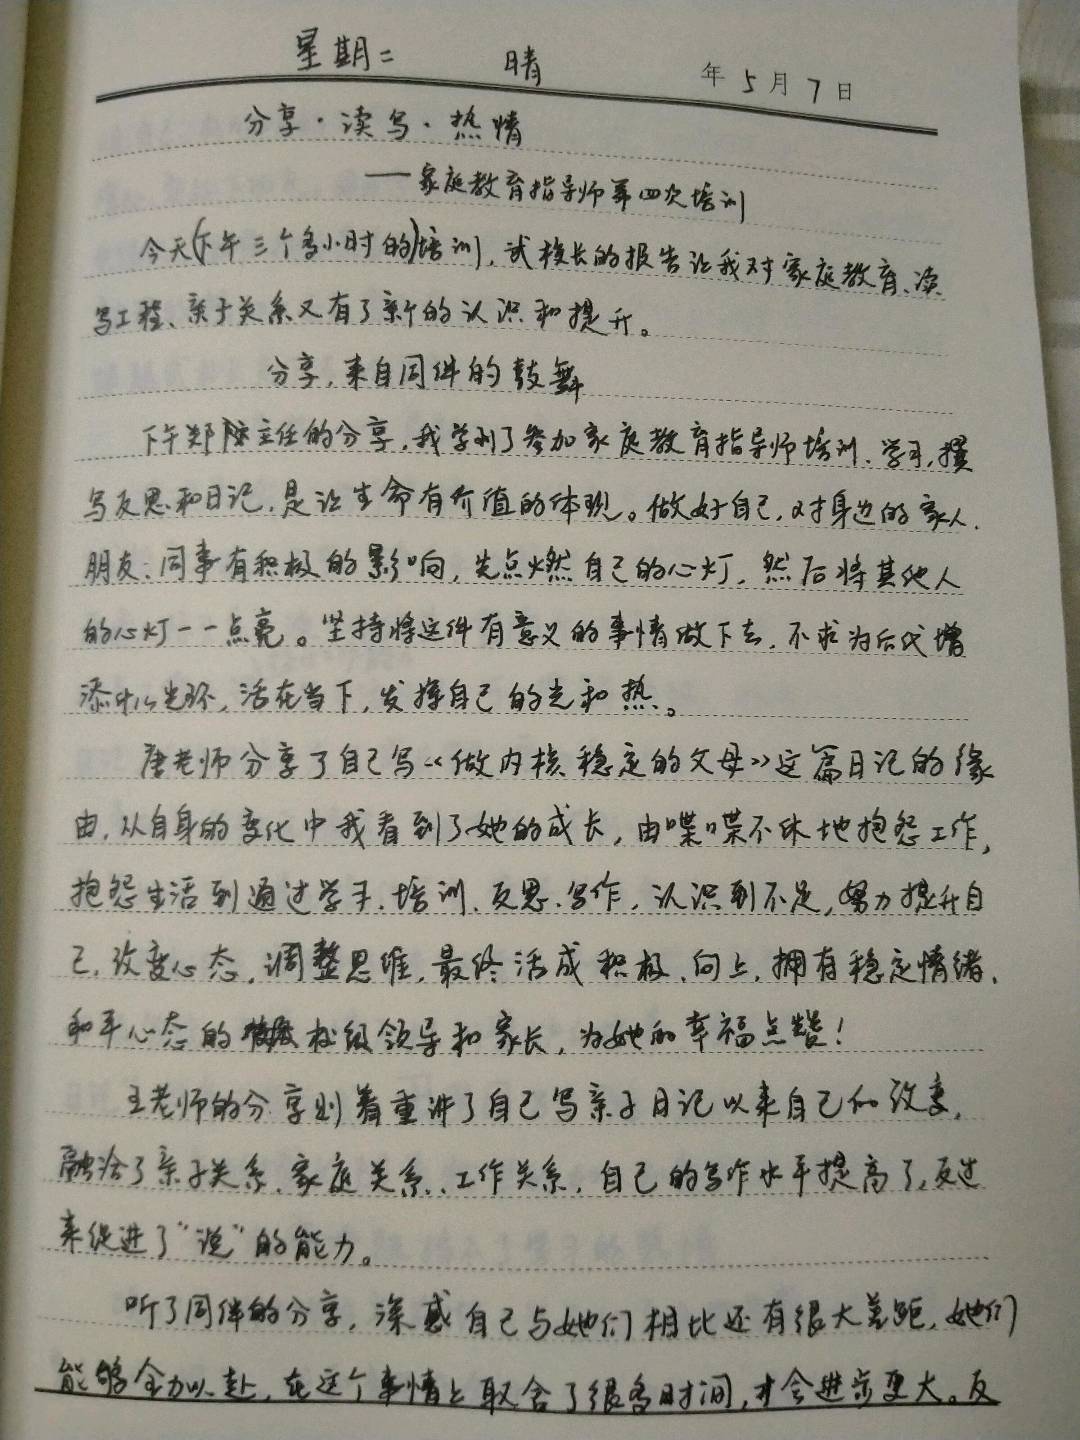 星期二 晴 年5月7日
分享·读写·热情
——家庭教育指导师第四次培训
今天(下午三个多小时的)培训，试校长的报告让我对家庭教育、读
写工程、亲子关系又有了新的认识和提升。
分享，来自同伴的鼓舞
下午郑主任的分享，我学到了参加家庭教育指导师培训、学习，撰
写反思和日记，是让生命有价值的体现。做好自己，对身边的家人、
朋友、同事有积极的影响，先点燃自己的心灯，然后将其他人
的心灯一一点亮。坚持将这件有意义的事情做下去，不求为后代增
添什么光环，活在当下，发挥自己的光和热。
唐老师分享了自己写《做内核稳定的父母》这篇日记的缘
由，从自身的变化中我看到了她的成长，由喋喋不休地抱怨工作，
抱怨生活到通过学习、培训、反思、写作，认识到不足，努力提升自
己，改变心态，调整思维，最终活成积极、向上，拥有稳定情绪、
和平心态的校级领导和家长，为她的幸福点赞！
王老师的分享则着重讲了自己写亲子日记以来自己的改变，
融洽了亲子关系、家庭关系、工作关系，自己的写作水平提高了，反过
来促进了“说”的能力。
听了同伴的分享，深感自己与她们相比还有很大差距，她们
能够全力以赴，在这个事情上取舍了很多时间，才会进步更大。反